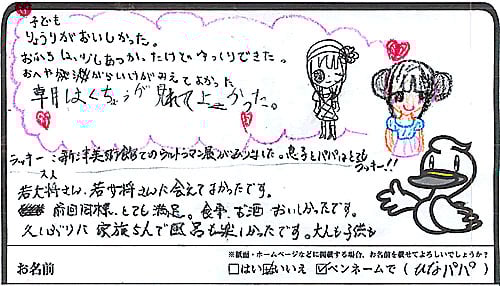 子ども
りょうりがおいしかった。
おふろは、少しあつかったけどゆっくりできた。
おへやからいけがみえてよかった。
朝はくちょうが見れてよかった。
ラッキー:新津美術館でのウルトラマン展がありました。息子とパパはとてもラッキー!!
大人
若大将さん、若女将さんに会えてよかったです。
前回同様、とても満足。食事、お酒おいしかったです。
久しぶりに家族5人で風呂も楽しかったです。大人も子供も
※紙面・ホームページなどに掲載する場合、お名前を載せてよろしいでしょうか?
お名前 □はい ☑いいえ ☑ペンネームで(ひなパパ)